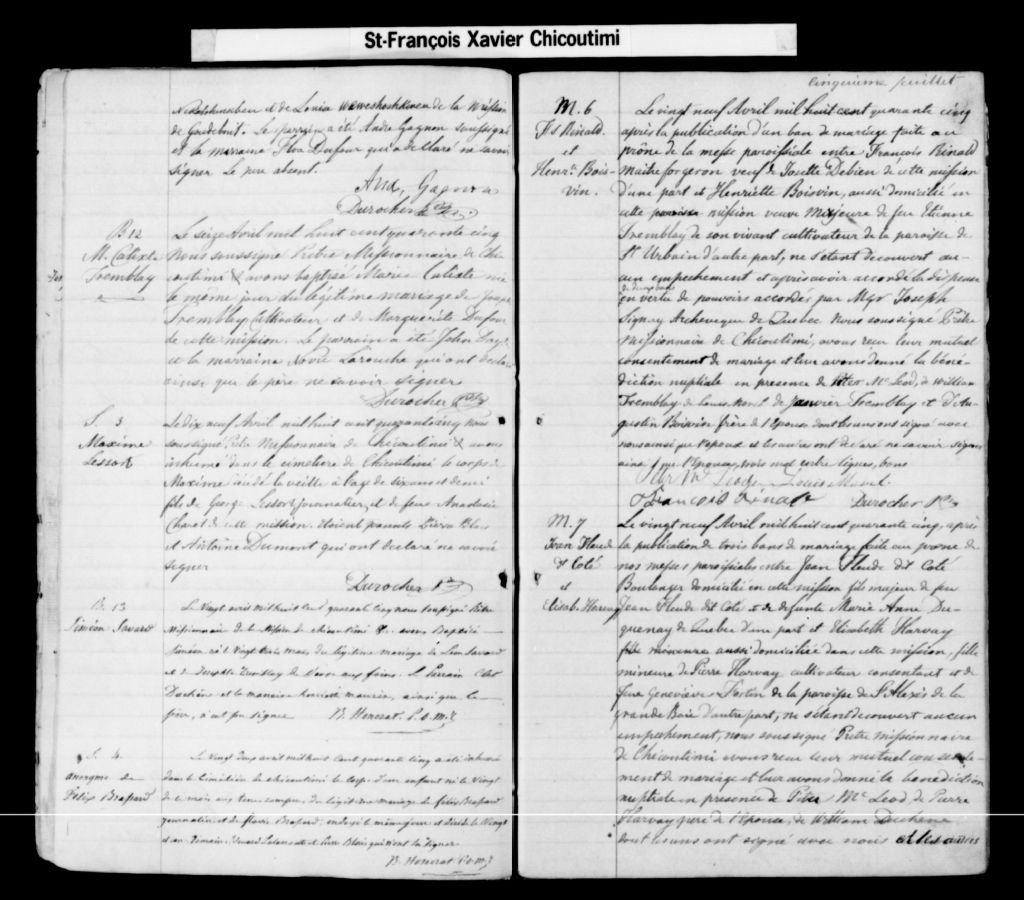 St-François Xavier Chicoutimi
et de Louise de la Mission
de Goudebout. Le parrain a été André Gagnon soussigné
et la marraine Dufour qui a déclaré ne savoir
signer Le père absent.
And, Gagnon
Durocher Ptre
B 12
M. Calixte
Tremblay
Le seize Avril mil huit cent quarante cinq
Nous soussigné Prêtre Missionnaire de Chi-
coutimi avons baptisé Marie Calixte née
le même jour du légitime mariage de Joseph
Tremblay Cultivateur et de Marguerite Dufour
de cette mission. Le parrain a été John
et la marraine Larouche qui ont déclaré
ainsi que le père ne savoir signer
Durocher Ptre
S. 3
Maxime
Lessort
Le dix neuf Avril mil huit cent quarante cinq nous
soussigné Prêtre Missionnaire de Chicoutimi avons
inhumé dans le cimetière de Chicoutimi le corps de
Maxime décédé la veille à l'age de six ans et demi
fils de George Lessort journalier, et de feue Anastasie
de cette mission. étoient présents Pierre Blais
et Antoine Dumont qui ont déclaré ne savoir
signer
Durocher Ptre
B. 13
Siméon Savard
Le Vingt avril mil huit cent quarante cinq nous soussigné Prêtre
Missionnaire de la Mission de chicoutimi avons Baptisé
Siméon né le Vingt mars du légitime mariage de Léon Savard
et de Tremblay de. Le Parrain
Duchêne et la maraine maurice, ainsi que le
père, n'ont pu signer B. Honorat P.o.m.j
S. 4
anonyme de
Félix Brassard
Le Vingt avril mil huit cent quarante cinq a été inhumé
dans le Cimetière de chicoutimi le corps d'un enfant né le Vingt
de ce mois du légitime mariage de félix Brassard
journalier et de Brassard le même jour et le Vingt
et Pierre Blais qui n'ont su signer
B. Honorat P.o.m.j
Cinquième feuillet
M. 6
Fs Rinald.
et
Henr. Bois-
vin.
Le vingt neuf Avril mil huit cent quarante cinq
après la publication d'un ban de mariage faite au
prône de la messe paroissiale entre François Rinald
Maitre forgeron veuf de Josette Debien de cette mission
d'une part et Henriette Boisvin, aussi domicilié en
cette paroisse mission veuve Majeure de feu Etienne
Tremblay de son vivant cultivateur de la paroisse de
St Urbain d'autre part, ne s'étant découvert au-
cun empechement et après avoir accordé la dispense
de deux bans
en vertu de pouvoirs accordés par Mgr Joseph
Signay Archeveque de Quebec nous soussigné Prêtre
missionnaire de Chicoutimi, avons reçu leur mutuel
consentement de mariage et leur avons donné la béné-
diction nuptiale en presence de Peter Mc Leod, de William
Tremblay de Louis de Janvier Tremblay et d'Au-
gustin Boisvin frère de l'Epouse dont les uns ont signé avec
nous ainsi que l'epoux et les autres ont déclaré ne savoir signer
ainsi que l'Epouse, trois mots entre lignes, bons
Peter Mc Leod Louis
François Rénald Durocher Ptre
M. 7
Jean Flude
dt Coté
et
Elisab. Harvay
Le vingt neuf Avril mil huit cent quarante cinq, après
la publication de trois bans de mariage faite au prone de
nos messes paroissiales entre Jean Flude dit Coté
Boulanger domicilié en cette mission fils majeur de feu
Jean Flude dit Coté et de defunte Marie Anne Du-
quenay de Quebec d'une part et Elisabeth Harvay
fille mineure aussi domiciliée dans cette mission, fille
mineure de Pierre Harvay cultivateur consentant et de
feue Geneviève Fortin de la paroisse de St Alexis de la
grande Baie d'autre part, ne s'étant découvert aucun
empechement, nous soussigné Prêtre missionnaire
de Chicoutimi avons reçu leur mutuel consente-
ment de mariage et leur avons donné la bénédiction
nuptiale en presence de Peter Mc Leod, de Pierre
Harvay père de l'Epouse, de William Duchene
dont les uns ont signé avec nous et les autres